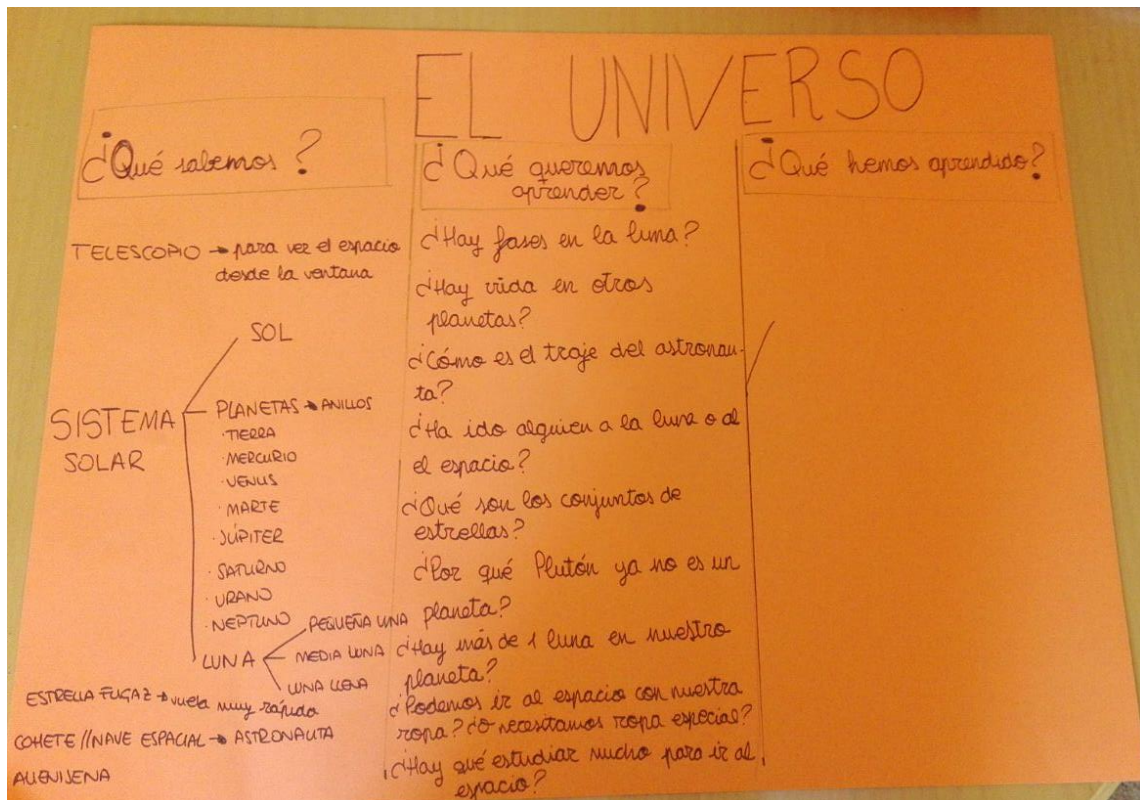 EL UNIVERSO
¿Qué sabemos?
TELESCOPIO → para ver el espacio
desde la ventana
SISTEMA
SOLAR
SOL
PLANETAS → ANILLOS
·TIERRA
·MERCURIO
·VENUS
·MARTE
·JÚPITER
·SATURNO
·URANO
·NEPTUNO
LUNA
PEQUEÑA LUNA
MEDIA LUNA
LUNA LLENA
ESTRELLA FUGAZ → vuela muy rápido
COHETE // NAVE ESPACIAL → ASTRONAUTA
ALIENIJENA
¿Qué queremos
aprender?
¿Hay fases en la luna?
¿Hay vida en otros
planetas?
¿Cómo es el traje del astronau-
ta?
¿Ha ido alguien a la luna o al
el espacio?
¿Qué son los conjuntos de
estrellas?
¿Por qué Plutón ya no es un
planeta?
¿Hay más de 1 luna en nuestro
planeta?
¿Podemos ir al espacio con nuestra
ropa? ¿O necesitamos ropa especial?
¿Hay qué estudiar mucho para ir al
espacio?
¿Qué hemos aprendido?